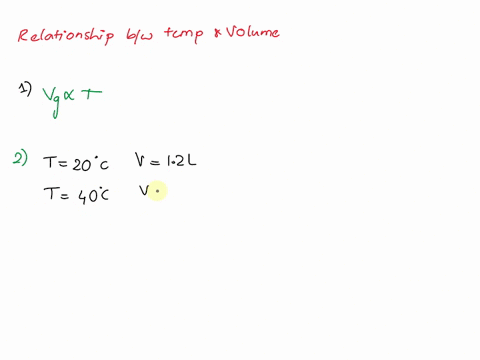 Relationship b/w temp & Volume
1) Vg ∝ T
2) T = 20°C V = 1.2 L
T = 40°C V